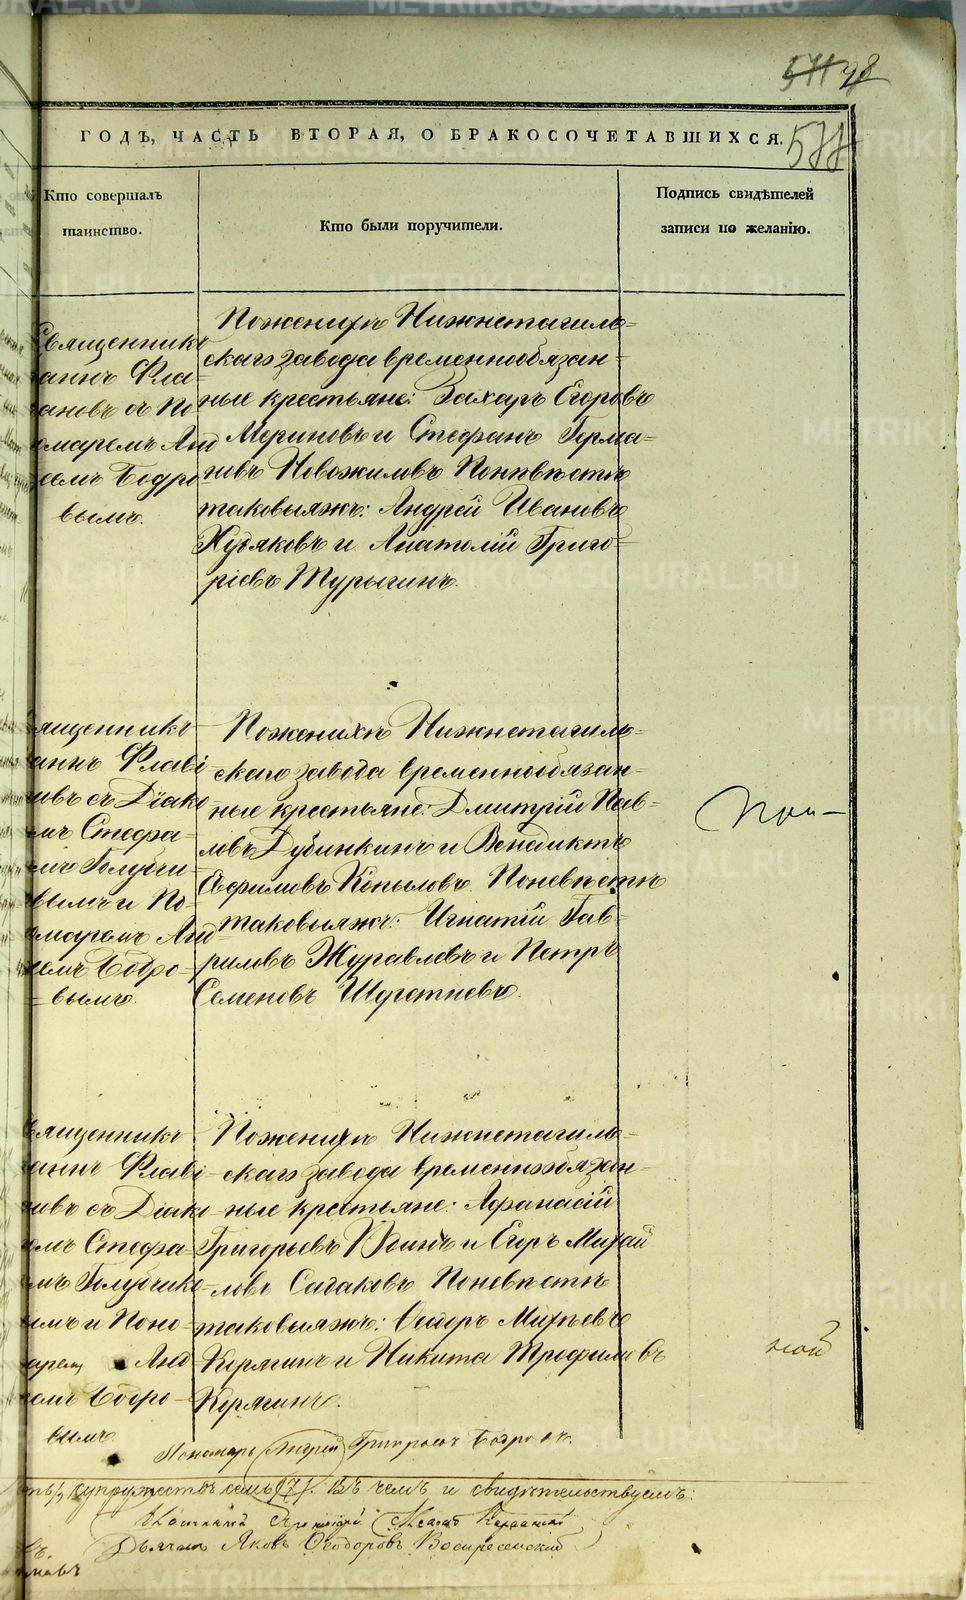 98
577
ГОДЪ, ЧАСТЬ ВТОРАЯ, О БРАКОСОЧЕТАВШИХСЯ.
Кто совершалъ
таинство.
Кто были поручители.
Подпись свидѣтелей
записи по желанію.
Священникъ
Фла-
новъ съ По
маремъ Анд
реемъ Бодро
вымъ.
Поженихѣ Нижнетагиль-
скаго завода временнообязан-
ные крестьяне: Захаръ Егоровъ
Мериновъ и Стефанъ Герма-
новъ Новожиловъ Поневѣстѣ
таковыяжъ: Андрей Ивановъ
Худяковъ и Анатолій Григо-
ріевъ Турыгинъ.
ященникъ
аннъ Флаві
новъ съ Діако
мъ Стефа-
мъ Голубчи-
вымъ и По-
маремъ Анд
реемъ Бодро-
вымъ.
Поженихѣ Нижнетагиль-
скаго завода временнообязан-
ные крестьяне: Дмитрій Пав-
ловъ Дубинкинъ и Венедиктъ
Копыловъ Поневѣстѣ
таковыяжъ: Игнатій Гав-
риловъ Журавлевъ и Петръ
Семеновъ
При-
ященникъ
аннъ Флаві
новъ съ Діако
омъ Стефа-
мъ Голубчико
ымъ и Поно-
марем Анд
реемъ Бодро-
вымъ.
Поженихѣ Нижнетагиль-
скаго завода временнообязан-
ные крестьяне: Афанасій
Григорьевъ и Егоръ Михай
ловъ Садаковъ Поневѣстѣ
таковыяжъ: Ѳедоръ Михѣевъ
и Никита Трофимовъ
Пономарь Андрей Григорьевъ Бодровъ.
супружествъ семь (7). Въ чемъ и свидѣтельствуемъ:
Дьячекъ Яковъ Ѳеодоровъ Воскресенскій
METRIKI.GASO-URAL.RU